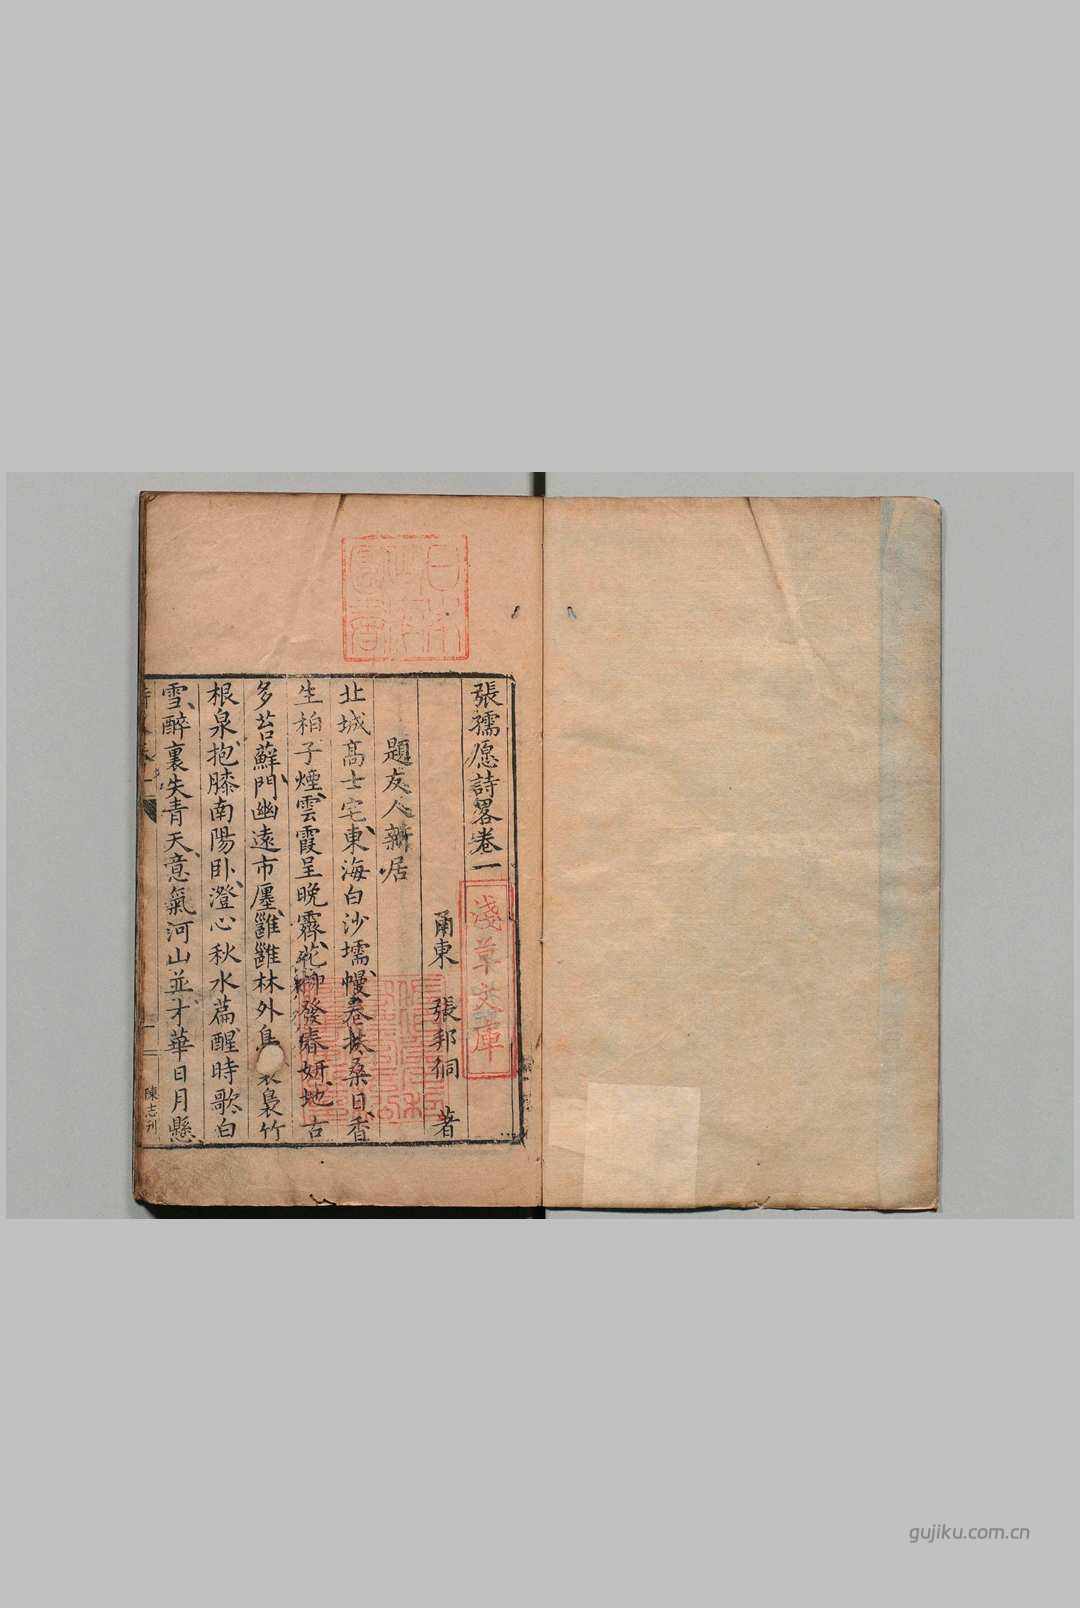 張孺愿詩畧卷一
甬東 張邦侗 著
題友人新居
北城高士宅東海白沙壖幔卷扶桑日香
生柏子煙雲霞呈晚霽花柳發春妍地古
多苔蘚門幽遠市廛雝雝林外鳥 褭竹
根泉抱膝南陽卧澄心秋水篇醒時歌白
雪醉裏失青天意氣河山並才華日月懸
陳志刊
淺草文庫
gujiku.com.cn